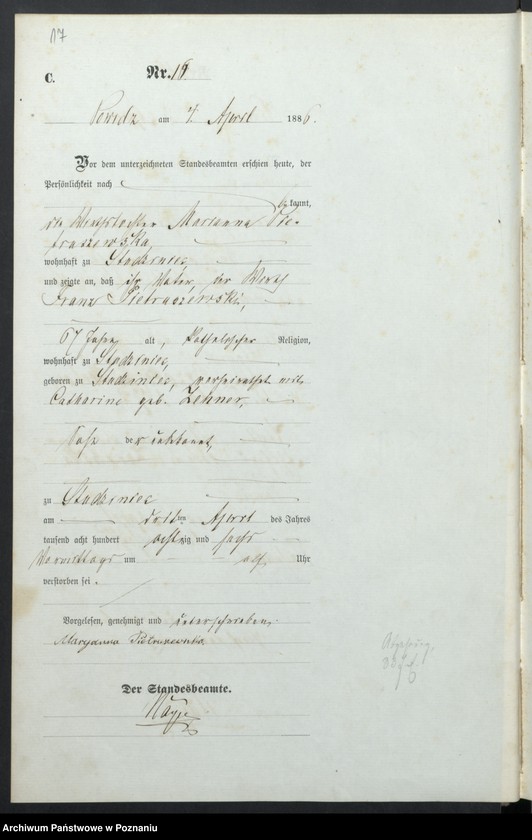 17
C. Nr. 18
Powidz am 4 April 1886.
Vor dem unterzeichneten Standesbeamten erschien heute, der
Persönlichkeit nach
bekannt,
die Wirthstochter Marianna Pie-
truszewska,
wohnhaft zu
und zeigte an, daß ihr Vater, der Wirth
Franz Pietruszewski,
67 Jahre alt, katholischer Religion,
wohnhaft zu
geboren zu verheirathet mit
Catharine geb.
Sohn der unbekannt,
zu
am dritten April des Jahres
tausend acht hundert achtzig und sechs
Vormittags um elf Uhr
verstorben sei.
Vorgelesen, genehmigt und unterschrieben.
Maryanna
Der Standesbeamte.
Archiwum Państwowe w Poznaniu